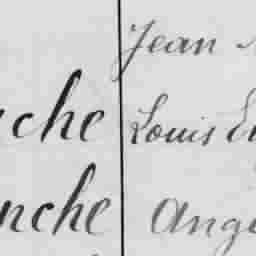 Jean
che Louis Eu
nche Ange